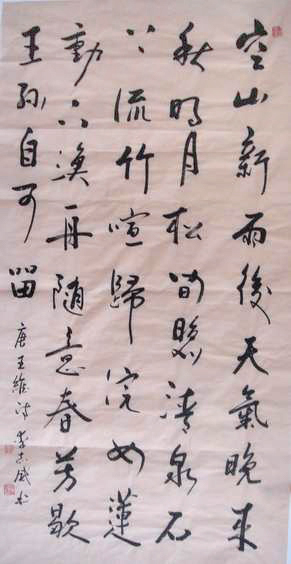 空山新雨後天氣晚來
秋明月松間照清泉石
上流竹喧歸浣女蓮
動下漁舟隨意春芳歇
王孫自可留
唐王維詩 李